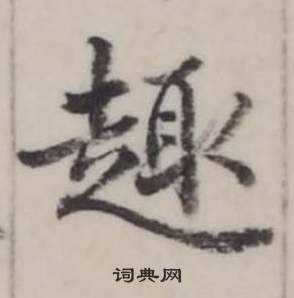 趣
词典网